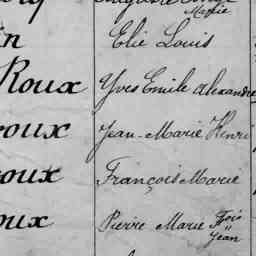 Marie
in Elie Louis
Roux Yves Emile Alexandre
roux Jean-Marie Henri
oux François Marie
oux Pierre Marie Fois
Jean